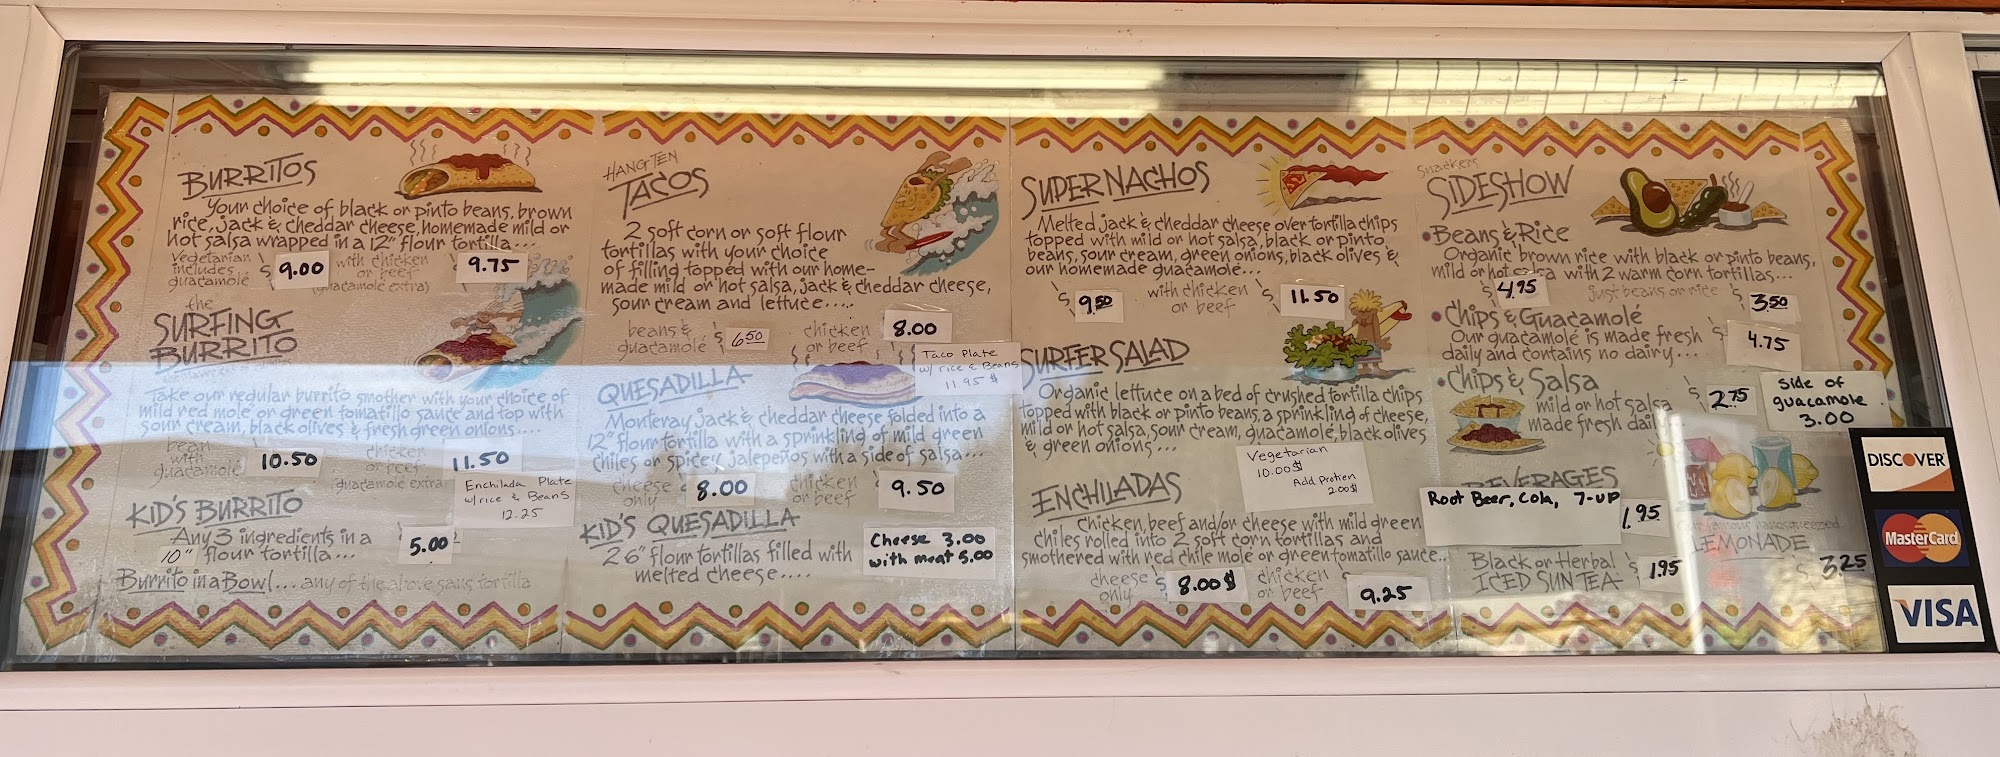 BURRITOS
Your choice of black or pinto beans, brown
rice, jack & cheddar cheese, homemade mild or
hot salsa wrapped in a 12" flour tortilla...
Vegetarian
includes
guacamole
$ 9.00
with chicken
or beef
(guacamole extra)
$ 9.75
the
SURFING
BURRITO
Take our regular burrito smother with your choice of
mild red mole or green tomatillo sauce and top with
sour cream, black olives & fresh green onions....
bean
with
guacamole
10.50
chicken
or beef
guacamole extra
11.50
Enchilada Plate
w/rice & Beans
12.25
KID'S BURRITO
Any 3 ingredients in a
10" flour tortilla...
5.00
Burrito in a Bowl... any of the above sans tortilla
HANG TEN
TACOS
2 soft corn or soft flour
tortillas with your choice
of filling topped with our home-
made mild or hot salsa, jack & cheddar cheese,
sour cream and lettuce.....
beans &
guacamole
$ 6.50
chicken
or beef
8.00
Taco Plate
w/rice & Beans
11.95 $
QUESADILLA
Monteray jack & cheddar cheese folded into a
12" flour tortilla with a sprinkling of mild green
chiles or spicey jalepeños with a side of salsa...
cheese
only
$ 8.00
chicken
or beef
9.50
KID'S QUESADILLA
2 6" flour tortillas filled with
melted cheese....
Cheese 3.00
with meat 5.00
SUPER NACHOS
Melted jack & cheddar cheese over tortilla chips
topped with mild or hot salsa, black or pinto
beans, sour cream, green onions, black olives &
our homemade guacamole...
$ 9.50
with chicken
or beef
$ 11.50
SURFER SALAD
Organic lettuce on a bed of crushed tortilla chips
topped with black or pinto beans, a sprinkling of cheese,
mild or hot salsa, sour cream, guacamole, black olives
& green onions...
Vegetarian
10.00$
Add Protien
2.00$
ENCHILADAS
Chicken, beef and/or cheese with mild green
chiles rolled into 2 soft corn tortillas and
smothered with red chile mole or green tomatillo sauce..
cheese
only
$ 8.00$
chicken
or beef
$ 9.25
Snackers
SIDESHOW
• Beans & Rice
Organic brown rice with black or pinto beans,
mild or hot salsa with 2 warm corn tortillas...
$ 4.95
just beans or rice
$ 3.50
• Chips & Guacamole
Our guacamole is made fresh
daily and contains no dairy...
$ 4.75
• Chips & Salsa
mild or hot salsa
made fresh dail
$ 2.75
Side of
guacamole
3.00
BEVERAGES
Root Beer, Cola, 7-UP
1.95
Black or Herbal
ICED SUN TEA
$ 1.95
our famous handsqueezed
LEMONADE
$ 3.25
DISCOVER
MasterCard
VISA